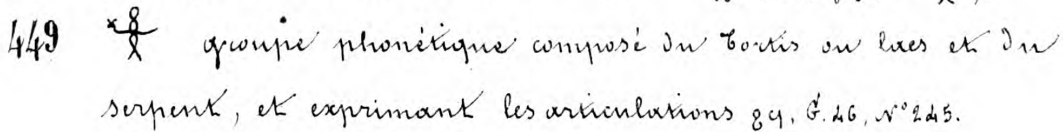 449 groupe phonétique composé du tortis ou lacs et du
serpent, et exprimant les articulations G. 46, N° 245.